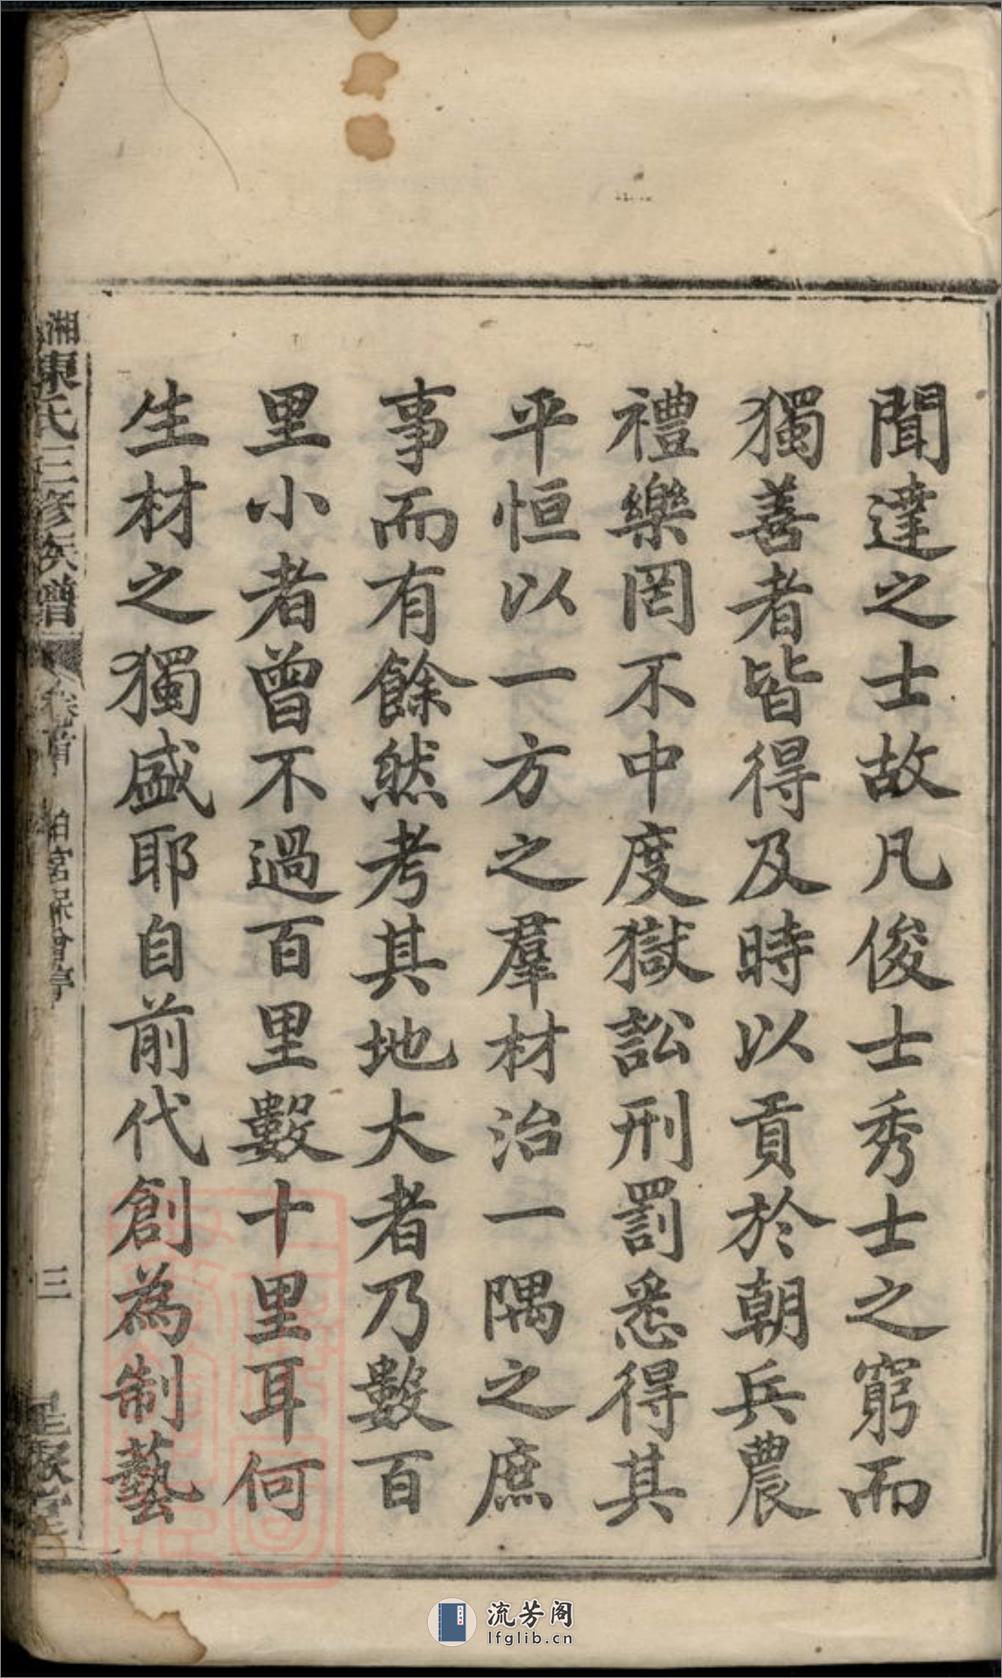 聞達之士故凡俊士秀士之窮而
獨善者皆得及時以貢於朝兵農
禮樂罔不中度獄訟刑罰悉得其
平恒以一方之羣材治一隅之庶
事而有餘然考其地大者乃數百
里小者曾不過百里數十里耳何
生材之獨盛耶自前代創為制藝
湘東氏三修族譜
卷首
三
星聚堂
流芳阁
lfglib.cn